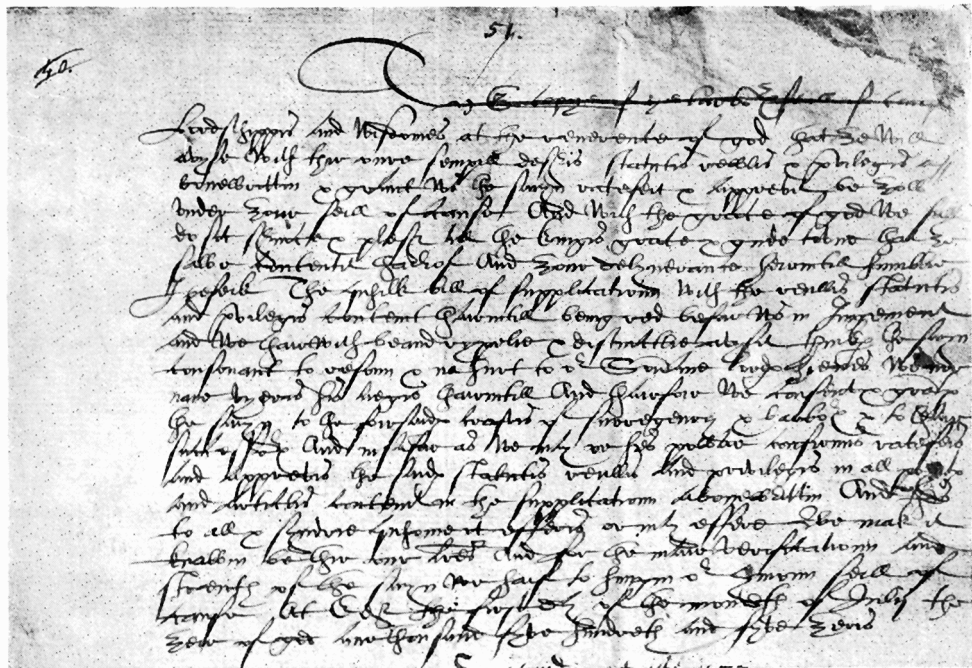 51.
50.
Lordschippis and Wisdomes at the reverence of god that ze will
avyse with thir oure sempill desyris statutis rewlis & privilegis
abonewrittin & grant ws the samyn ratefeit & apprevit be zow
under zour seill of caus And with the grace of god we sall
do sic service & plesr to the kingis grace & gude toune that ze
salbe content thairof And zour delyverance heirintill humblie
I beseik The quhilk bill of supplicatioun with the rewlis statutis
and privilegis contenit thairintill being red befor ws in Jugement
and we thairwith beand ryplie & distinctlie avysit thinkis the samyn
consonant to ressoun & na hurt to or Soverane lordis hienes we nor
nane utheris his liegis thairintill And thairfoir we consent & grantis
the samyn to the forsaidis craftis of surregenry & barbor & to thair
successoris And in sa far as we may or hes power confirmis ratefeis
and apprevis the saidis statutis rewlis and privilegis in all pointis
and articlis contenit in the supplicatioun abonewrittin And this
to all & sindrie quhome it efferis or may effere We mak it
knawin be thir our lres And for the mair verificatioun and
strenth of the samyn we haif to hungin or commoun seill of
caus At Edr the first day of the moneth of Julij the
zeir of god ane thousand fyve hundreth and fyve zeiris